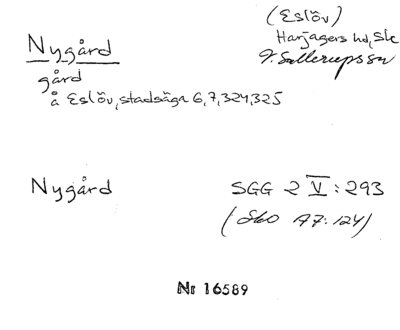 (Eslöv)
Nygård Harjagers hd, Sk
gård V. Sallerups sn
å Eslöv, stadsäga 6,7,324,325
Nygård SGG 2 V:293
(SkO A7:124)
Nr 16589